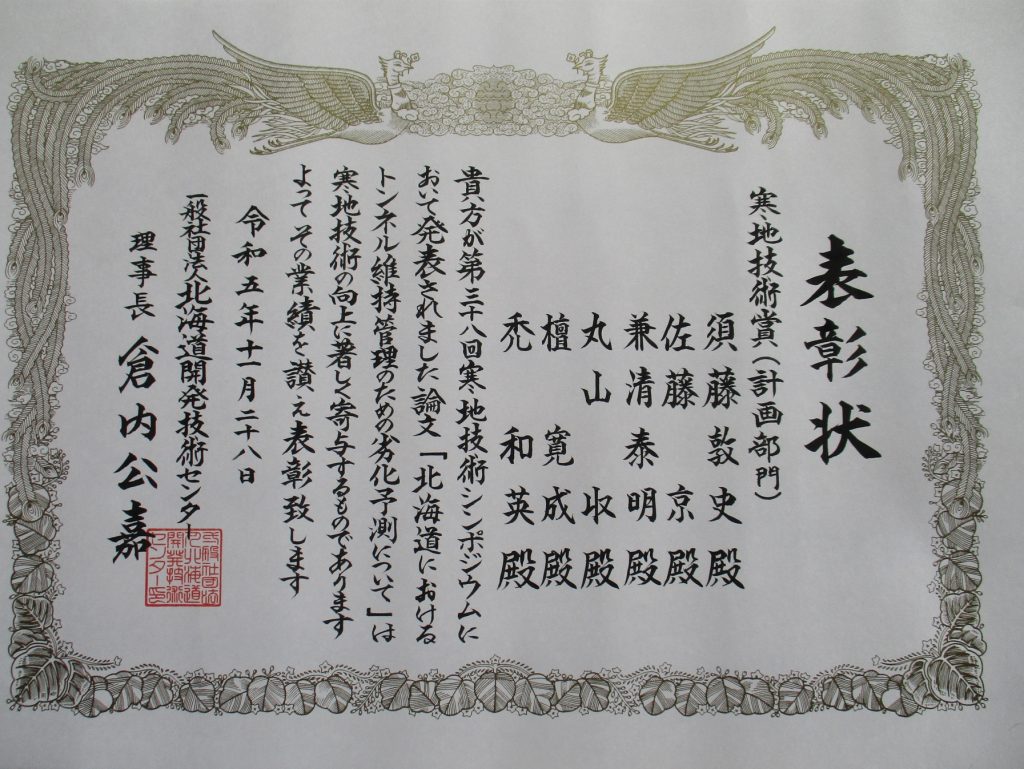 表彰状
寒地技術賞（計画部門）
須藤敦史殿
佐藤京殿
兼清泰明殿
丸山收殿
檀寛成殿
禿和英殿
貴方が第三十八回寒地技術シンポジウムに
おいて発表されました論文「北海道における
トンネル維持管理のための劣化予測について」は
寒地技術の向上に著しく寄与するものであります
よってその業績を讃え表彰致します
令和五年十一月二十八日
一般社団法人北海道開発技術センター
理事長 倉内公嘉
一般社団法人
北海道
開発技術
センター印